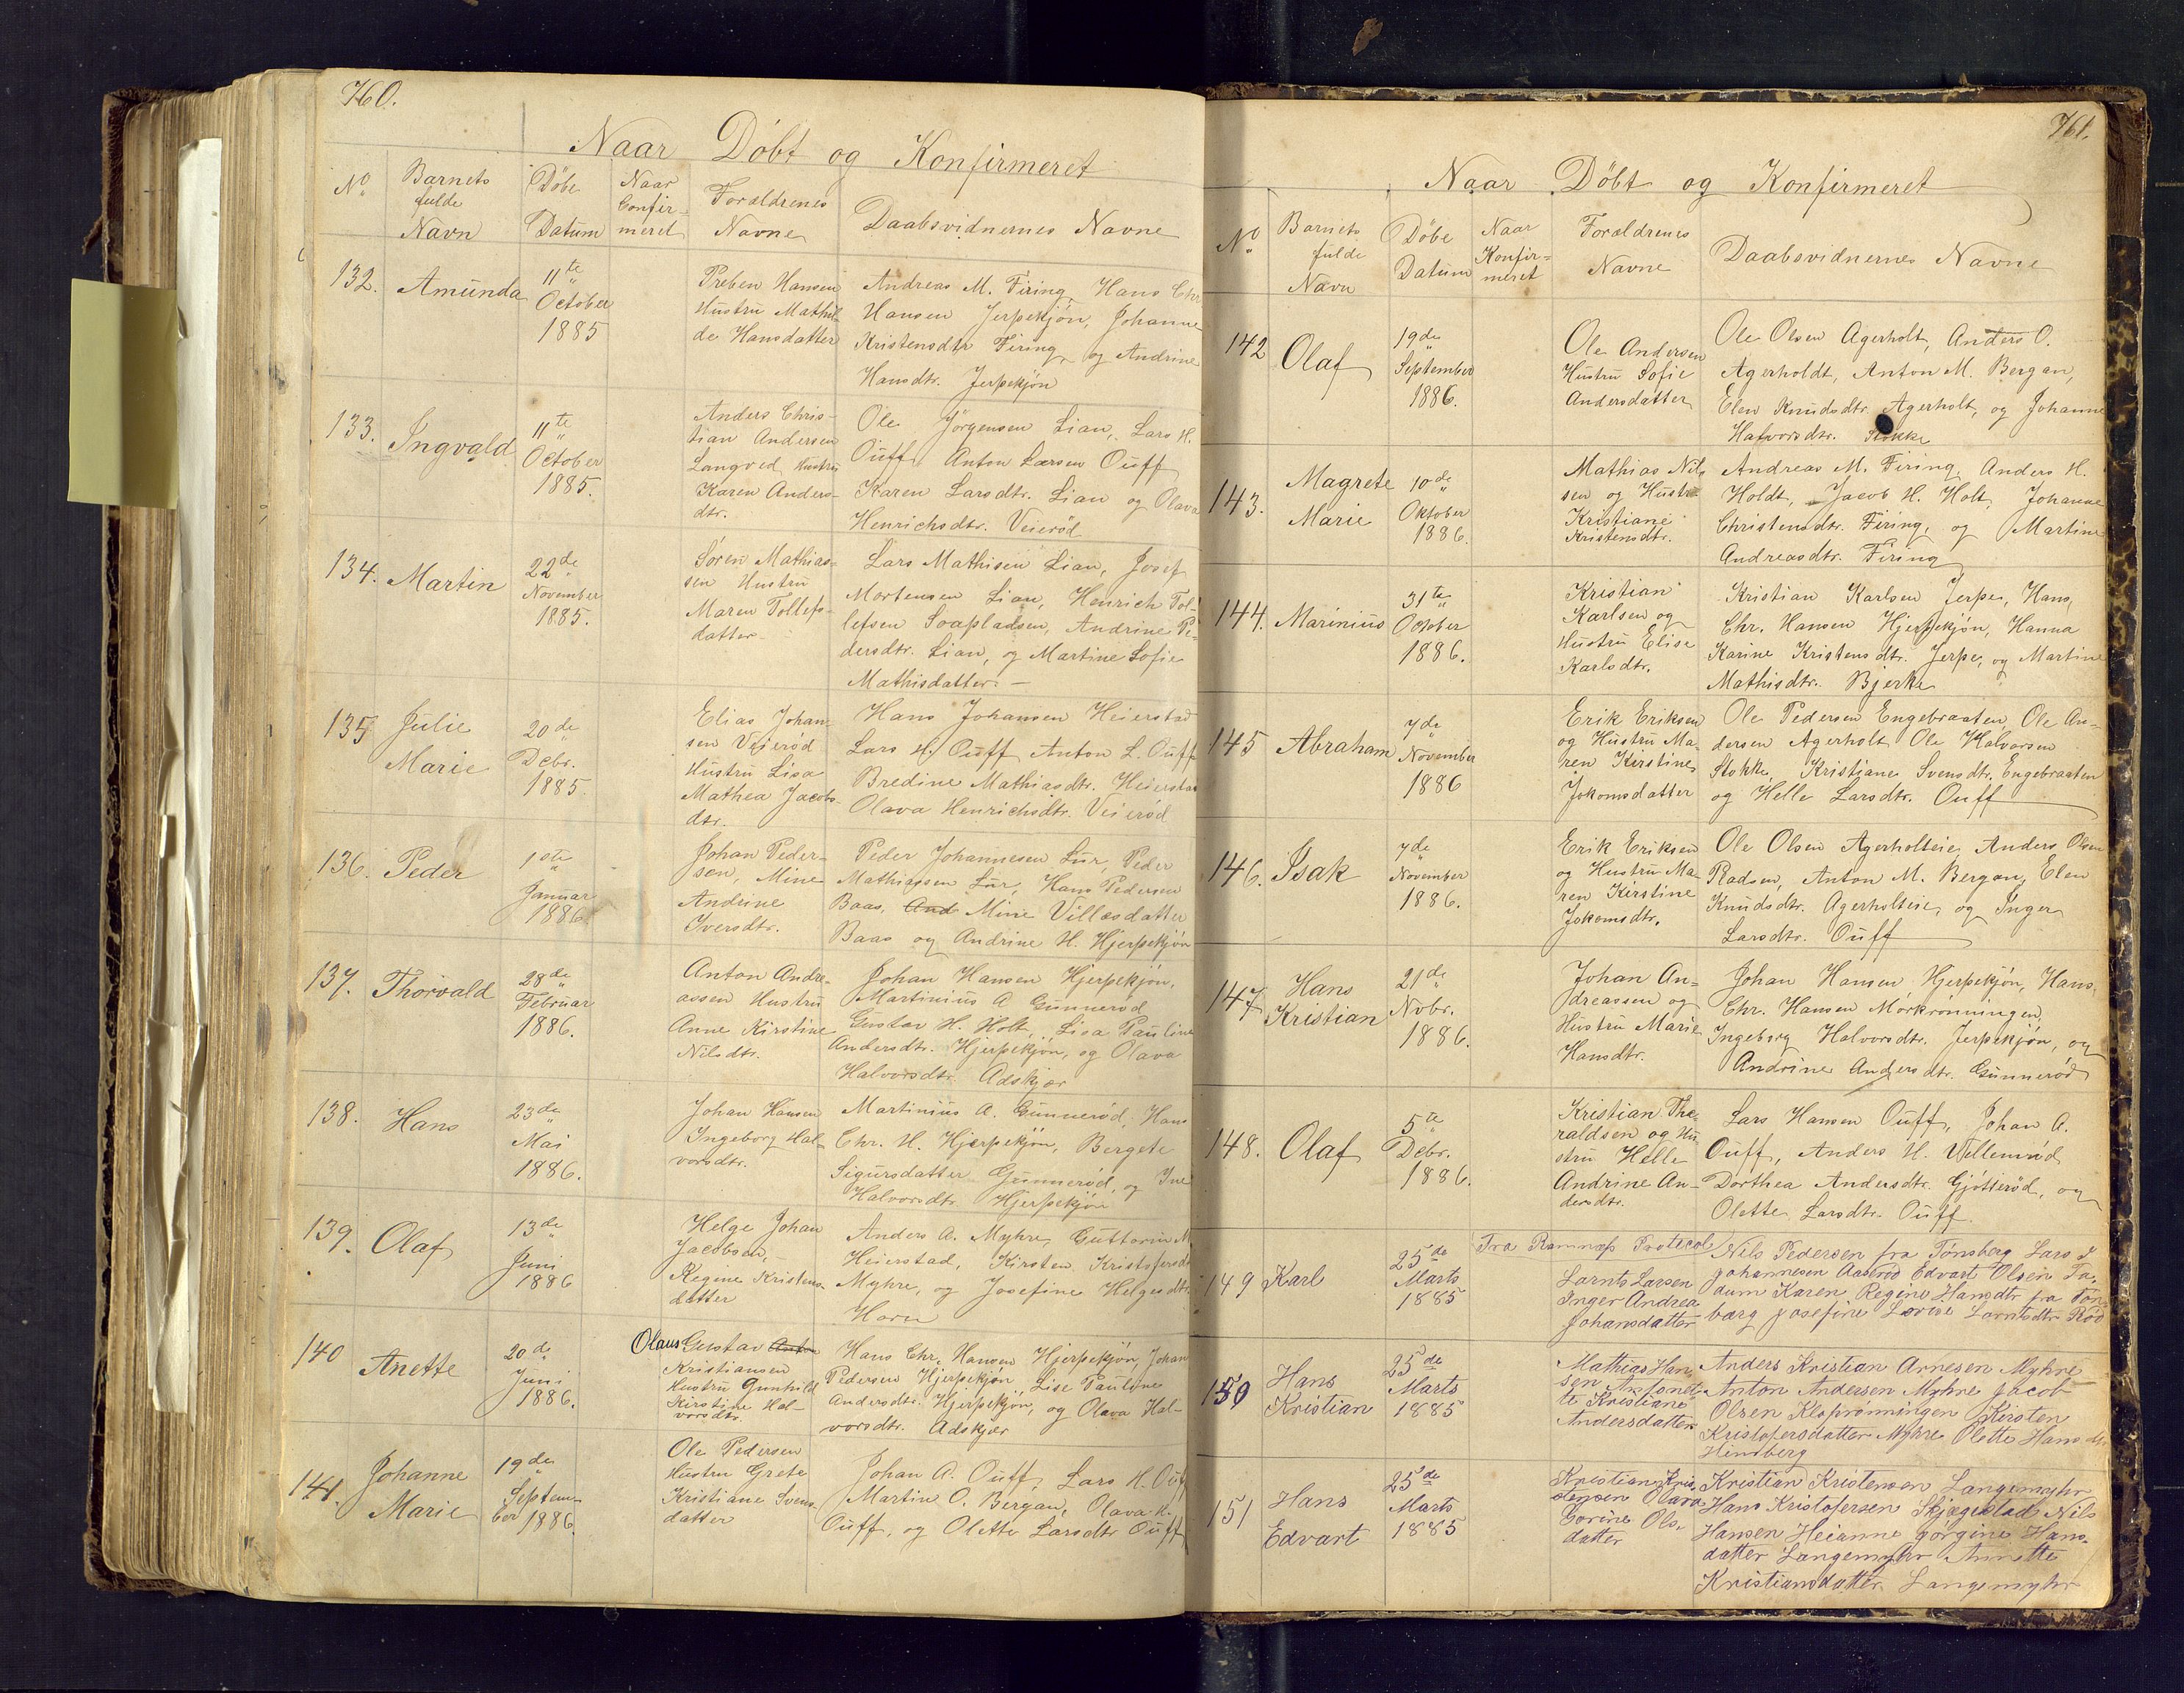 760.
Naar Döbt og Konfirmeret
No
Barnets fulde Navn
Döbe Datum
Naar Confirmeret
Forældrenes Navne
Daabsvidnernes Navne
132.
Amunda
11te
October
1885
Preben Hansen
Hustru Mathil-
de Hansdatter
Andreas M. Firing, Hans Chr
Hansen Jerpekjön, Johanne
Kristensdtr Firing og Andrine
Hansdtr. Jerpekjön
133.
Ingvald
11te
October
1885.
Anders Chris-
tian Andersen
Langved, Hustru
Karen Anders-
dtr.
Ole Jörgensen Lian, Lars H.
Ouff, Anton Larsen Ouff
Karen Larsdtr. Lian og Olava
Henrichsdtr. Veieröd
134.
Martin
22de
November
1885.
Sören Mathias-
sen Hustru
Maren Tollefs-
datter
Lars Mathisen Lian, Josef
Mortensen Lian, Henrich Tol-
lefsen Soapladsen, Andrine Pe-
dersdtr. Lian, og Martine Sofie
Mathisdatter. —
135
Julie
Marie
20de
Debr.
1885.
Elias Johan-
sen Veieröd
Hustru Lisa
Mathea Jacobs-
dtr.
Hans Johansen Heierstad
Lars H. Ouff Anton L. Ouff
Bredine Mathiasdtr. Heierstad
Olava Henrichsdtr. Veieröd
136.
Peder
1ste
Januar
1886.
Johan Peder-
sen, Mine
Andrine
Iversdtr.
Peder Johannesen Lur, Peder
Mathiassen Lur, Hans Pedersen
Baas, And Mine Villasdatter
Baas og Andrine H. Hjerpekjön
137.
Thorvald
28de
Februar
1886.
Anton Andre-
assen Hustru
Anne Kirstine
Nilsdtr.
Johan Hansen Hjerpekjön,
Martinius A Gunneröd
Gustav H. Holt, Lisa Pauline
Andersdtr. Hjerpekjön, og Olava
Halvorsdtr. Adskjær
138.
Hans
23de
Mai
1886.
Johan Hansen
Ingeborg Hal-
vorsdtr.
Martinius A. Gunneröd, Hans
Chr. H. Hjerpekjön, Bergete
Sigursdatter Gunneröd, og Ine
Halvorsdtr. Hjerpekjön
139.
Olaf
13de
Juni
1886
Helge Johan
Jacobsen,
Regine Kristens-
datter
Anders A. Myhre, Guttorm M
Heierstad, Kirsten Kristofersdtr
Myhre, og Josefine Helgesdtr.
Horn
140
Anette
20de
Juni
1886.
Olaus Gustav Anton
Kristiansen
Hustru Gunhild
Kirstine Hal-
vorsdtr.
Hans Chr. Hansen Hjerpekjön, Johan
Pedersen Hjerpekjön, Lise Pauline
Andersdtr. Hjerpekjön, og Olava Hal-
vorsdtr. Adskjær
141.
Johanne
Marie
19de
Septem-
ber 1886.
Ole Pedersen
Hustru Grete
Kristiane Svens-
datter
Johan A. Ouff, Lars H. Ouff
Martin O. Bergan, Olava H.
Ouff, og Olette Larsdtr Ouff
761.
Naar Döbt og Konfirmeret
No
Barnets fulde Navn
Döbe Datum
Naar Konfir=meret
Forældrenes Navne
Daabsvidnernes Navne
142
Olaf
19de
September
1886.
Ole Andersen
Hustru Sofie
Andersdatter
Ole Olsen Agerholt, Anders O.
Agerholdt, Anton M. Bergan,
Elen Knudsdtr. Agerholt, og Johanne
Halvorsdtr. Stokke
143.
Magrete
Marie
10de
Oktober
1886.
Mathias Nils
sen og Hustru
Kristiane
Kristensdtr.
Andreas M. Firing, Anders H.
Holdt, Jacob H. Holt, Johanne
Christensdtr. Firing, og Martine
Andreasdtr. Firing
144.
Marinius
31te
October
1886.
Kristian
Karlsen og
Hustru Elise
Karlsdtr.
Kristian Karlsen Jerpe, Hans
Chr. Hansen Hjerpekjön, Hanna
Karine Kristensdtr. Jerpe, og Martine
Mathisdtr. Bjerke
145
Abraham
7de
November
1886
Erik Eriksen
og Hustru Ma-
ren Kirstine
Jokomsdatter
Ole Pedersen Engebraaten, Ole An-
dersen Agerholt Ole Halvorsen
Stokke, Kristiane Svensdtr. Engebraaten
og Helle Larsdtr. Ouff
146.
Isak
7de
November
1886.
Erik Eriksen
og Hustru Ma-
ren Kirstine
Jokomsdtr.
Ole Olsen Agerholteie Anders Olsen
Pladsen, Anton M. Bergan, Elen
Knudsdtr. Agerholteie, og Inger
Larsdtr. Ouff
147
Hans
Kristian
21de
Nobr.
1886.
Johan An-
dreassen og
Hustru Marie
Hansdtr.
Johan Hansen Hjerpekjön, Hans
Chr. Hansen Mörkrönningen,
Ingeborg Halvorsdtr. Jerpekjön, og
Andrine Andersdtr. Gunneröd
148.
Olaf
5te
Debr.
1886.
Kristian The-
raldsen og Hu-
stru Helle
Andrine An-
dersdtr.
Lars Hansen Ouff, Johan A.
Ouff, Anders H. Vellemröd
Dorthea Andersdtr. Gjötteröd, og
Olette Larsdtr. Ouff.
Fra Ramnæs Protocol
149
Karl
25de
Marts
1885
Larnts Larsen
Inger Andrea
Johansdatter
Nils Pedersen fra Tönsberg Lars J
Johannesen Aaseröd Edvart Olsen Fa-
dum Karen Regine Hansdtr fra Töns
barg Josefine Lovise Larntsdtr Röd
150
Hans
Kristian
25de
Marts
1885
Mathias Han
sen Antonet-
te Kristiane
Andersdatter
Anders Kristian Arnesen Myhre
Anton Andersen Myhre Jacob
Olsen Kloprönningen Kirsten
Kristofersdatter Myhre Olette Hansdtr
Hindberg
151
Hans
Edvart
25de
Marts
1885
Kristian Kris-
stensen Olava
Corine Ols-
datter
Kristian Kristensen Langemyhr
Hans Kristofersen Skjægestad Nils
Hansen Heianne Görgine Hans-
datter Langemyhr Annette
Kristiansdatter Langemyhr